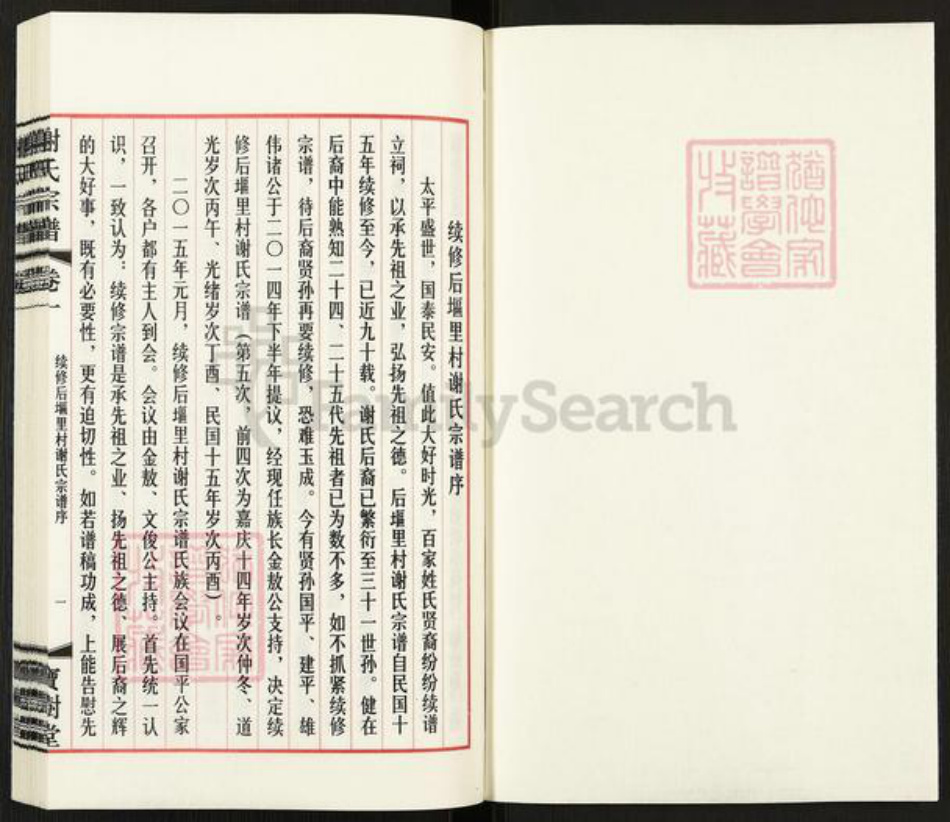 续修后堰里村谢氏宗谱序
太平盛世，国泰民安。值此大好时光，百家姓氏贤裔纷纷续谱
立祠，以承先祖之业，弘扬先祖之德。后堰里村谢氏宗谱自民国十
五年续修至今，已近九十载。谢氏后裔已繁衍至三十一世孙。健在
后裔中能熟知二十四、二十五代先祖者已为数不多，如不抓紧续修
宗谱，待后裔贤孙再要续修，恐难玉成。今有贤孙国平、建平、雄
伟诸公于二〇一四年下半年提议，经现任族长金敖公支持，决定续
修后堰里村谢氏宗谱（第五次，前四次为嘉庆十四年岁次仲冬、道
光岁次丙午、光绪岁次丁酉、民国十五年岁次丙酉）。
二〇一五年元月，续修后堰里村谢氏宗谱氏族会议在国平公家
召开，各户都有主人到会。会议由金敖、文俊公主持。首先统一认
识，一致认为：续修宗谱是承先祖之业、扬先祖之德、展后裔之辉
的大好事，既有必要性，更有迫切性。如若谱稿功成，上能告慰先
谢氏宗谱 卷一
续修后堰里村谢氏宗谱序
一
宝树堂
FamilySearch
谱學會
收藏